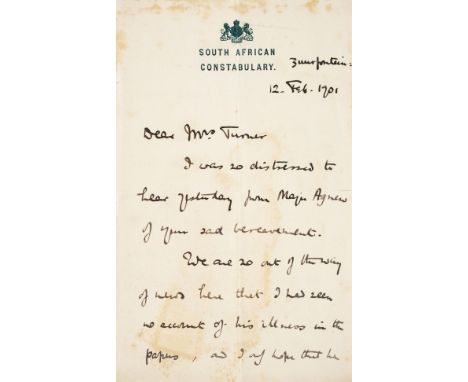 SOUTH AFRICAN
CONSTABULARY.
Zuurfontein.
12. Feb. 1901
Dear Mrs. Turner
I was so distressed to
hear yesterday from Major Agnew
of your sad bereavement.
We are so out of the way
of news here that I had seen
no account of his illness in the
papers, and I hope that he